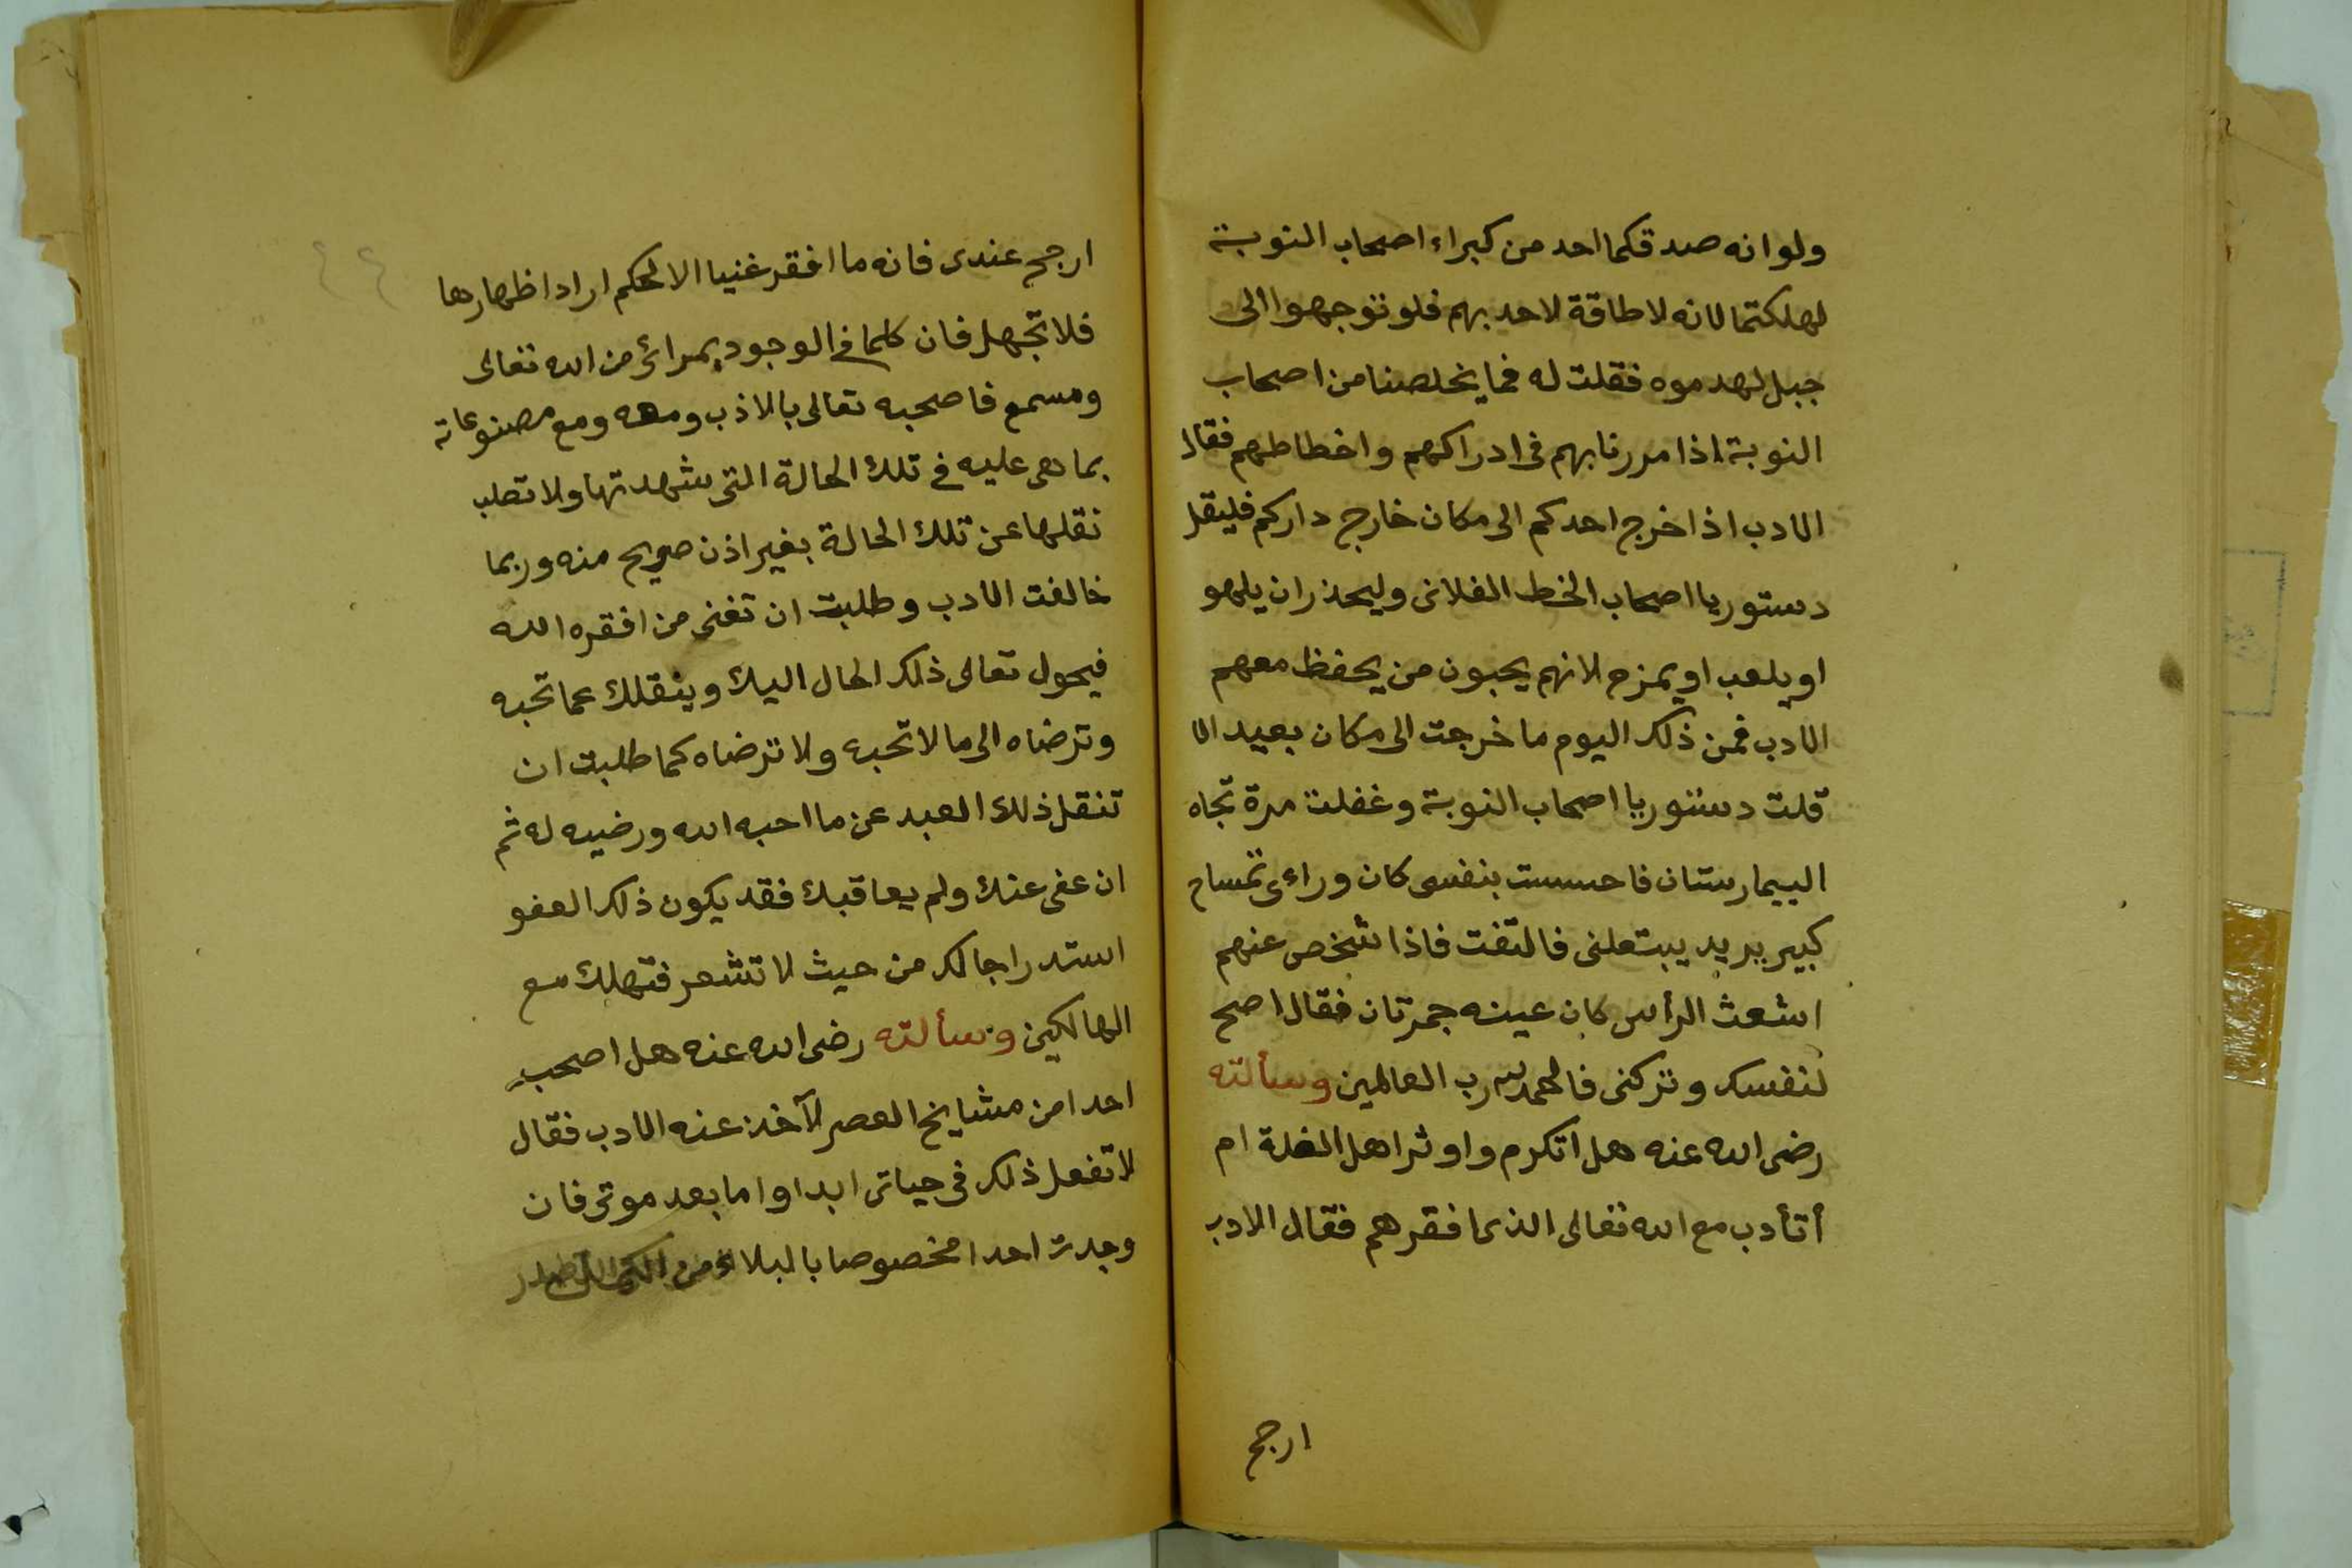 ولو انه صدقكما احد من كبراء اصحاب النوبة
لهلكتما لانه لا طاقة لاحد بهم فلو توجهوا الى
جبل لهدموه فقلت له فما يخلصنا من اصحاب
النوبة اذا مررنا بهم فى ادراكهم واخطاطهم فقال
الادب اذا خرج احدكم الى مكان خارج داركم فليقل
دستور يا اصحاب الخط الفلانى وليحذر ان يلهو
او يلعب او يمزح لانهم يحبون من يحفظ معهم
الادب فمن ذلك اليوم ما خرجت الى مكان بعيد الا
قلت دستور يا اصحاب النوبة وغفلت مرة تجاه
البيمارستان فاحسست بنفسى كان وراءى تمساح
كبير يريد يبتعلنى فالتفت فاذا شخص عنهم
اشعث الرأس كان عينه جمرتان فقال اصح
لنفسك وتركنى فالحمد لله رب العالمين وسألته
رضى الله عنه هل اتكرم واوثر اهل الغلة ام
أتأدب مع الله تعالى الذى افقرهم فقال الادب
ارجح
٤٤
ارجح عندى فانه ما افقر غنيا الا لحكم اراد اظهارها
فلا تجهل فان كلما فى الوجود بمرائ من الله تعالى
ومسمع فاصحبه تعالى بالاذب ومعه ومع مصنوعاته
بما هى عليه فى تلك الحالة التى شهدتها ولا تطلب
نقلها عن تلك الحالة بغير اذن صريح منه وربما
خالفت الادب وطلبت ان تغنى من افقره الله
فيحول تعالى ذلك الحال اليك وينقلك عما تحبه
وترضاه الى ما لا تحبه ولا ترضاه كما طلبت ان
تنقل ذلك العبد عن ما احبه الله ورضيه له ثم
ان عفى عنك ولم يعاقبك فقد يكون ذلك العفو
استدراجا لك من حيث لا تشعر فتهلك مع
الهالكين وسألته رضى الله عنه هل اصحب
احدا من مشايخ العصر لآخذ عنه الادب فقال
لا تفعل ذلك فى حياتى ابدا واما بعد موتى فان
وجدت احدا مخصوصا بالبلاء من